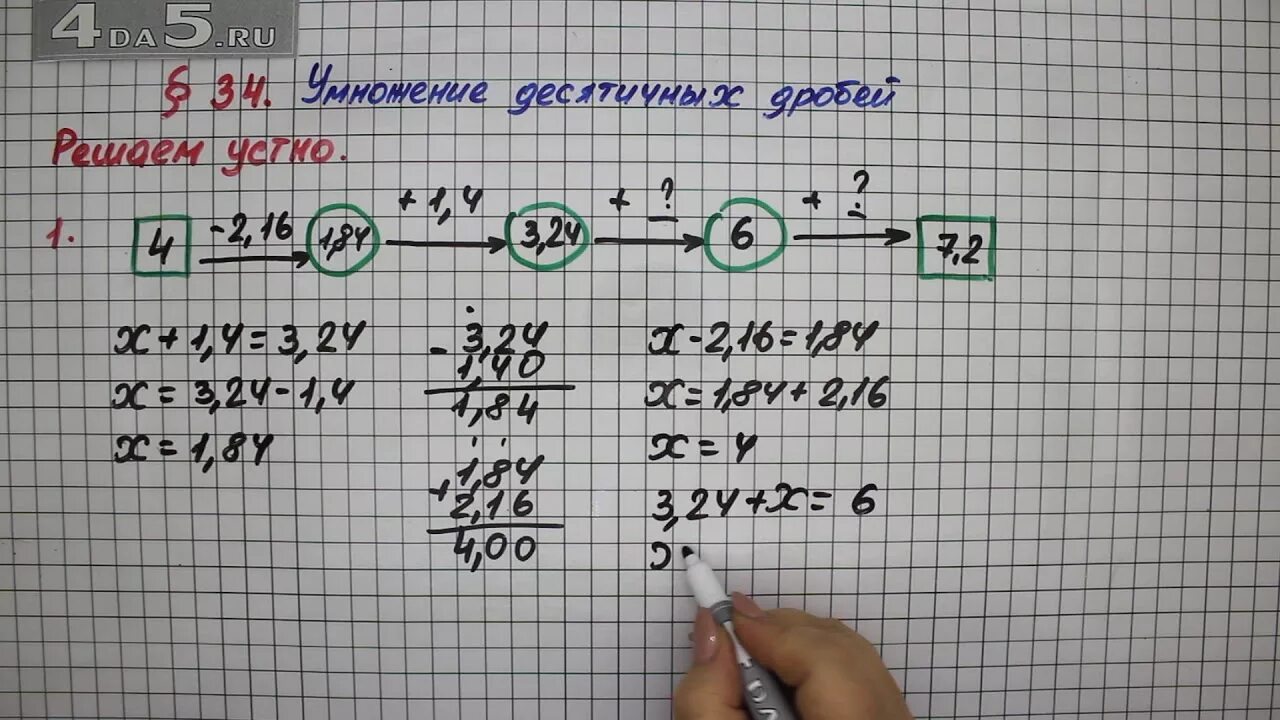 4DA5.RU
§ 34. Умножение десятичных дробей
Решаем устно.
1. 4 -2,16 1,84 + 1,4 3,24 + ? 6 + ? 7,2
x + 1,4 = 3,24
x = 3,24 - 1,4
x = 1,84
- 3,24
1,40
1,84
+ 1,84
2,16
4,00
x - 2,16 = 1,84
x = 1,84 + 2,16
x = 4
3,24 + x = 6